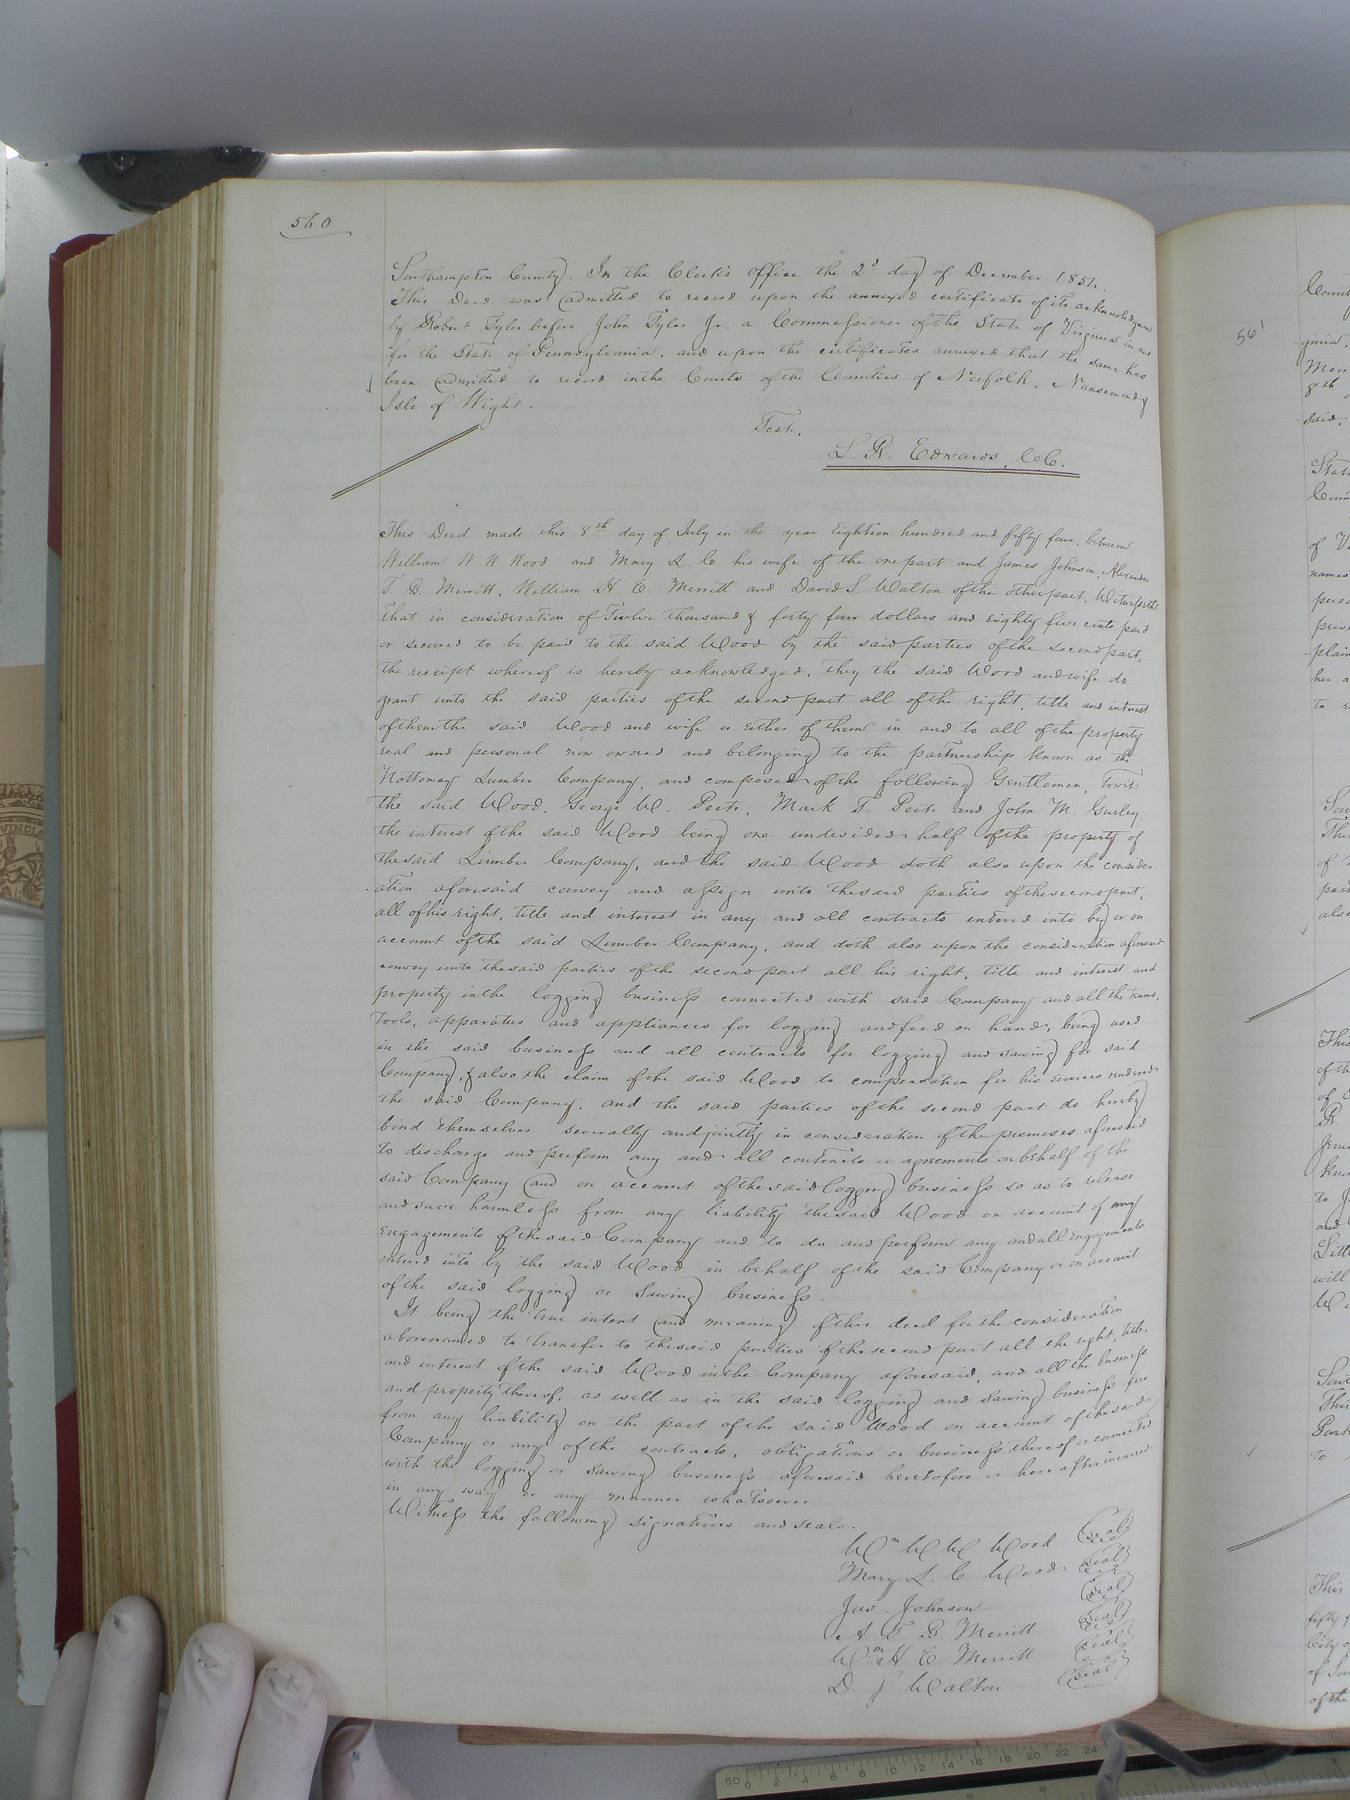 560
Southampton County. In the Clerk's office the 2d day of December 1854.
This Deed was admitted to record upon the annexed certificate of its acknowledgment
by Robert Tyler before John Tyler Jr. a Commissioner of the State of Virginia in and
for the State of Pennsylvania, and upon the certificates annexed that the same has
been admitted to record in the Courts of the Counties of Norfolk, Nansemond &
Isle of Wight.
Test.
L. R. Edwards, C.C.
This Deed made this 8th day of July in the year Eighteen hundred and fifty four, between
William W W Wood and Mary L. C. his wife of the one part and James Johnson, Alexander
T. B. Merritt, William H. E. Merritt and David S. Walton of the other part, Witnesseth
that in consideration of Twelve thousand & forty four dollars and Eighty five cents paid
or secured to be paid to the said Wood by the said parties of the second part,
the receipt whereof is hereby acknowledged, they the said Wood and wife do
grant unto the said parties of the second part all of the right, title and interest
of them the said Wood and wife or Either of them in and to all of the property
real and personal now owned and belonging to the partnership known as the
Nottoway Lumber Company, and composed of the following Gentlemen, towit:
the said Wood, George W. Peete, Mark T. Peete and John M. Gurley,
the interest of the said Wood being one undivided half of the property of
the said Lumber Company, and the said Wood doth also upon the consider-
ation aforesaid convey and assign unto the said parties of the second part,
all of his right, title and interest in any and all contracts entered into by or on
account of the said Lumber Company, and doth also upon the consideration aforesaid
convey unto the said parties of the second part all his right, title and interest and
property in the logging business connected with said Company and all the teams,
Tools, apparatus and appliances for logging and feed on hand, being used
in the said business and all contracts for logging and sawing for said
Company, & also the claim of the said Wood to compensation for his services rendered
the said Company, and the said parties of the second part do hereby
bind themselves severally and jointly in consideration of the premises aforesaid
to discharge and perform any and all contracts or agreements on behalf of the
said Company and on account of the said logging business so as to release
and save harmless from any liability the said Wood on account of any
Engagements of the said Company and to do and perform any and all Engagements
entered into by the said Wood in behalf of the said Company or on account
of the said logging or Sawing business.
It being the true intent and meaning of this deed for the consideration
abovenamed to transfer to the said parties of the second part all the right, title,
and interest of the said Wood in the Company aforesaid, and all the business
and property thereof, as well as in the said logging and Sawing business free
from any liability on the part of the said Wood on account of the said
Company or any of the contracts, obligations or business thereof or connected
with the logging or Sawing business aforesaid heretofore or hereafter incurred
in any way or any manner whatsoever
Witness the following signatures and seals.
Wm W W Wood Seal
Mary L. C. Wood Seal
Jas. Johnson Seal
A T B Merritt Seal
Wm H. E. Merritt Seal
D. S. Walton Seal
561